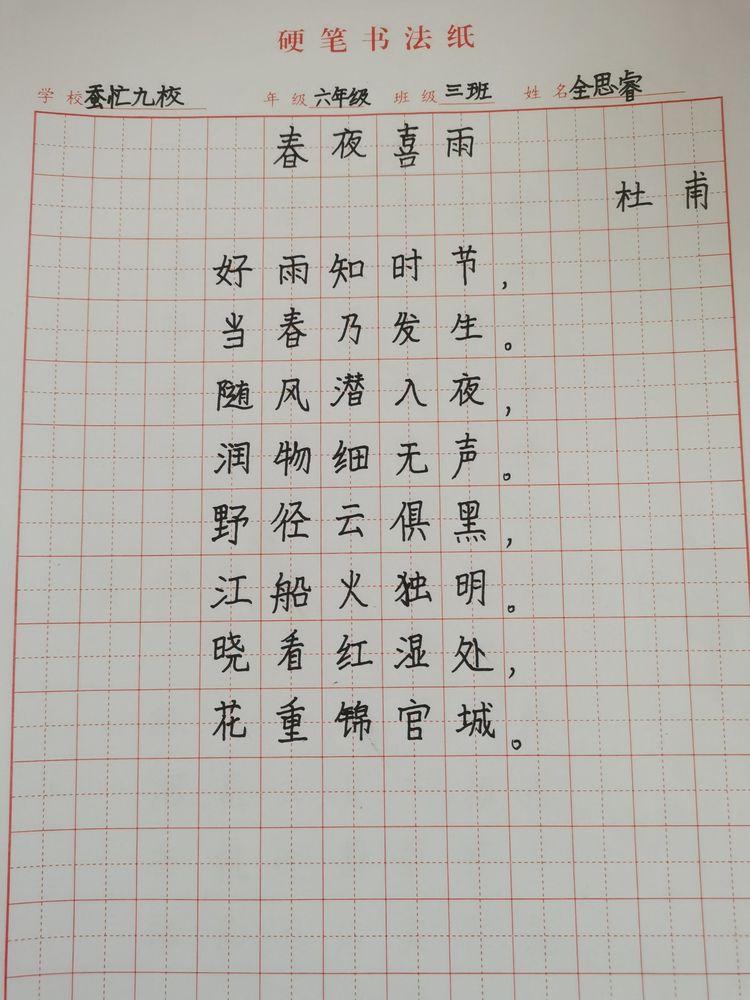 硬笔书法纸
学校 蚕忙九校 年级 六年级 班级 三班 姓名 全思睿
春夜喜雨
杜甫
好雨知时节，
当春乃发生。
随风潜入夜，
润物细无声。
野径云俱黑，
江船火独明。
晓看红湿处，
花重锦官城。